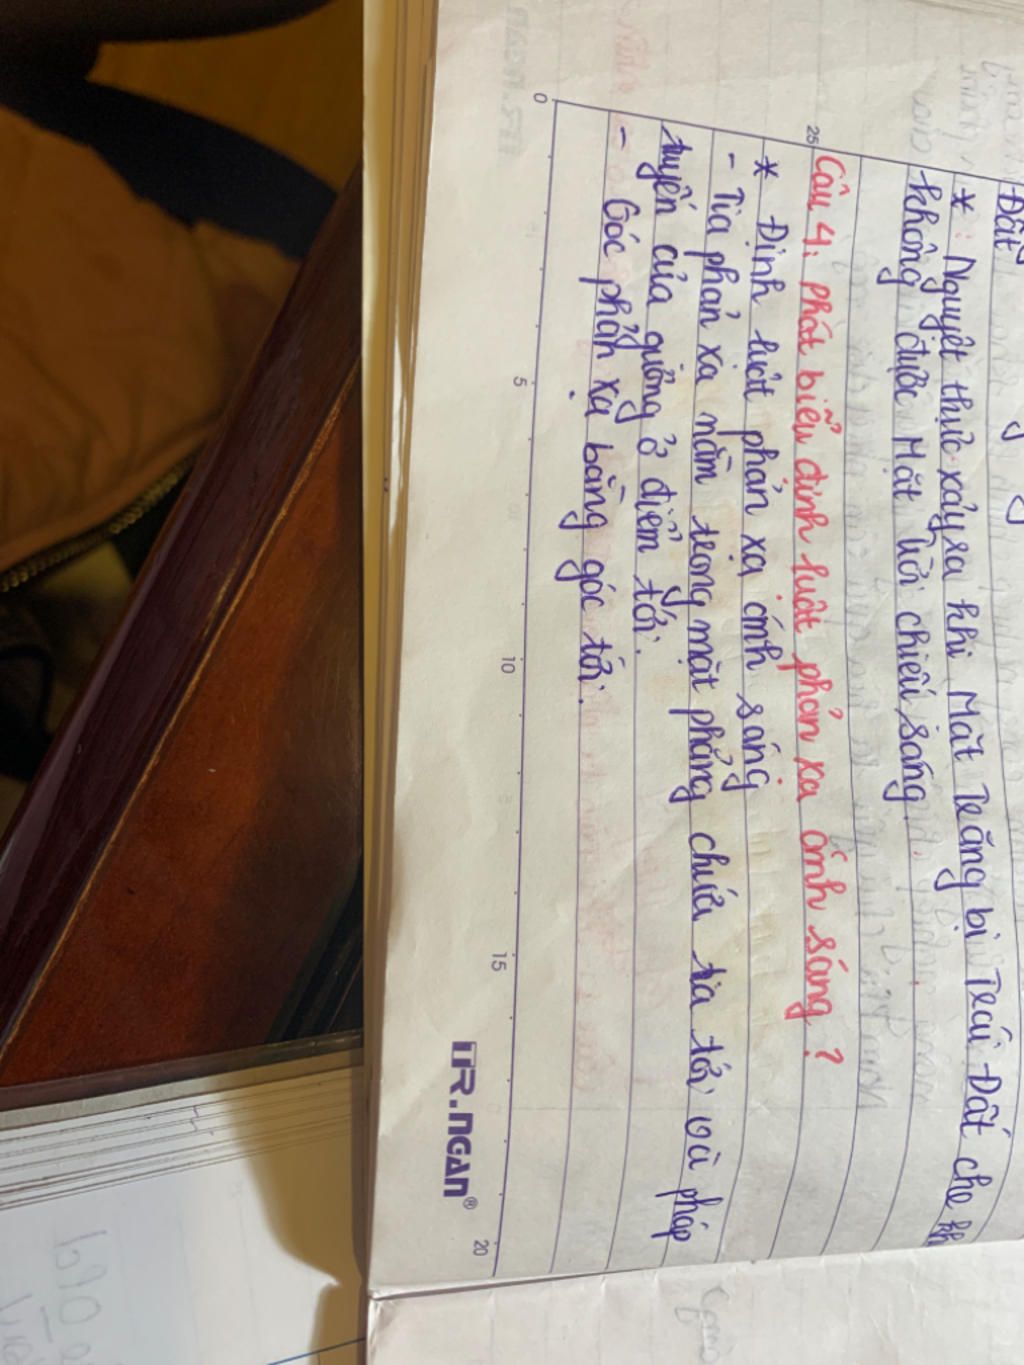 Đất
* Nguyệt thực xảy ra khi Mặt Trăng bị Trái Đất che kh
không được Mặt trời chiếu sáng
25
Câu 4: phát biểu định luật phản xạ ánh sáng?
* Định luật phản xạ ánh sáng
- Tia phản xạ nằm trong mặt phẳng chứa tia tới và pháp
tuyến của gưỡng ở điểm tới.
- Góc phản xạ bằng góc tới.
0 5 10 15 20
TR.NGAN®